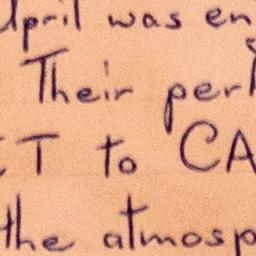 April was en
Their per
T to CA
the atmosp